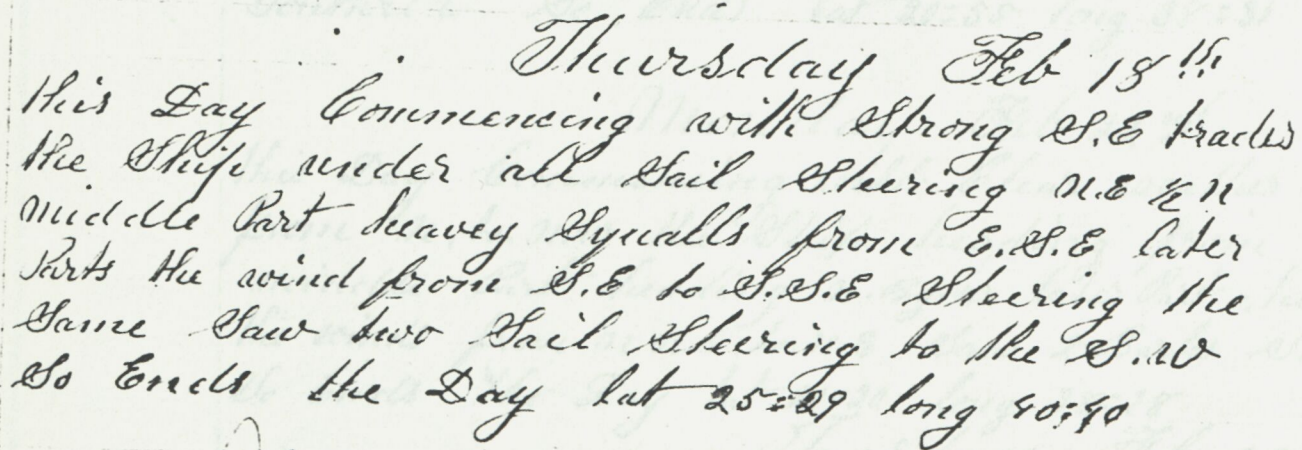 Thursday Feb 18th
this Day Commencing with Strong S.E trades
the Ship under all Sail Steering N.E ½ N
middle Part heavey Squalls from E.S.E later
Parts the wind from S.E to S.S.E Steering the
Same Saw two Sail Steering to the S.W
So Ends the Day lat 25=29 long 40=40